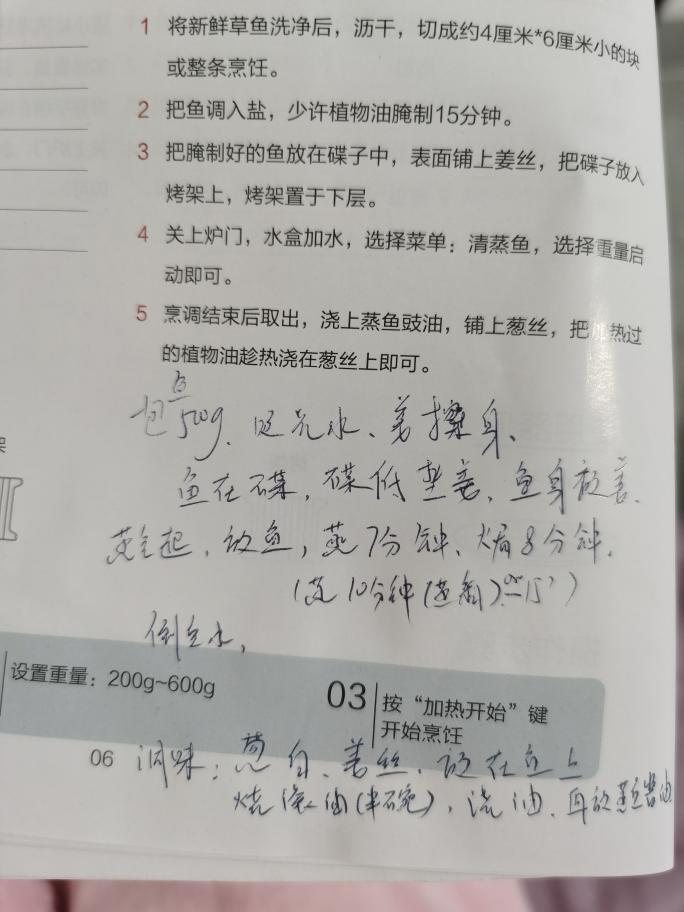 1 将新鲜草鱼洗净后，沥干，切成约4厘米*6厘米小的块
或整条烹饪。
2 把鱼调入盐，少许植物油腌制15分钟。
3 把腌制好的鱼放在碟子中，表面铺上姜丝，把碟子放入
烤架上，烤架置于下层。
4 关上炉门，水盒加水，选择菜单：清蒸鱼，选择重量启
动即可。
5 烹调结束后取出，浇上蒸鱼豉油，铺上葱丝，把加热过
的植物油趁热浇在葱丝上即可。
鱼
500g、水、姜擦身、
鱼在碟，碟低垫姜，鱼身放姜、
起，放鱼，蒸7分钟、焗8分钟，
10分钟 15'）
倒去水，
架
设置重量：200g~600g
03 按“加热开始”键
开始烹饪
06
调味：葱白、姜丝，放在鱼上
烧滚油(半碗)，浇油、再放蒸鱼酱油